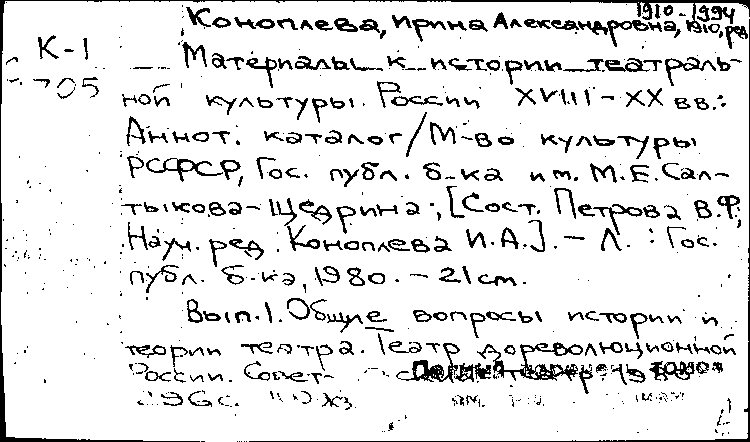 1910-1994
Коноплева, Ирина Александровна, 1910, ред.
К-1
705
Материалы к истории театраль-
ной культуры России XVIII-XX вв.:
Аннот. каталог/М-во культуры
РСФСР, Гос. публ. б-ка им. М.Е. Сал-
тыкова-Щедрина; [Сост. Петрова В.Ф.,
Науч. ред. Коноплева И.А.]. - Л. : Гос.
публ. б-ка, 1980. - 21 cm.
Вып.1. Общие вопросы истории и
теории театра. Театр дореволюционной
России. Совет-
296 с.